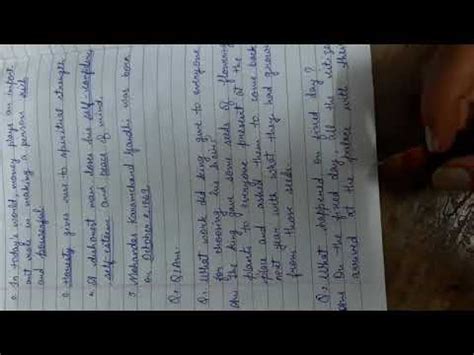 2. In today's world, money plays an import-
ant role in making a person rich
and powerful.
3. Honesty gives rise to spiritual strength.
4. A dishonest man loses his self-acceptance,
self-esteem and peace of mind.
5. Mohandas Karamchand Gandhi was born
on October 2, 1869
Q. Q/Ans.
Q. What work did king give to everyone
for choosing his heir?
Ans The king gave some seeds of flowering
plants to everyone present at the
place and asked them to come back
next year with what they had grown
from those seeds.
Q. What happened on fixed day?
Ans On the fixed day all the citizens
arrived at the palace with their